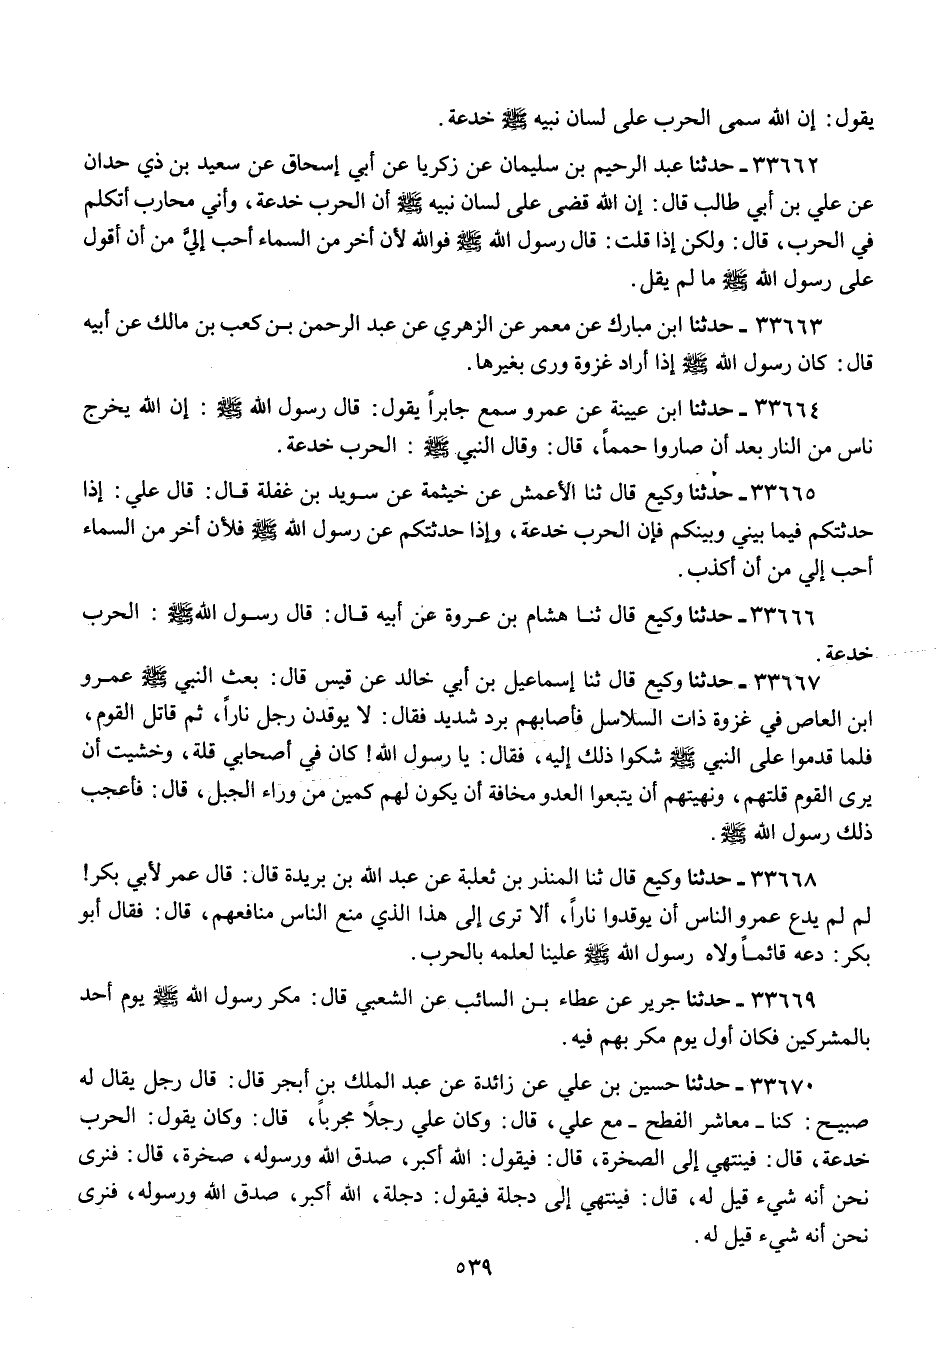 يقول: إن الله سمى الحرب على لسان نبيه ﷺ خدعة.
٣٣٦٦٢ ـ حدثنا عبد الرحيم بن سليمان عن زكريا عن أبي إسحاق عن سعيد بن ذي حدان
عن علي بن أبي طالب قال: إن الله قضى على لسان نبيه ﷺ أن الحرب خدعة، وأني محارب أتكلم
في الحرب، قال: ولكن إذا قلت: قال رسول الله ﷺ فوالله لأن أخر من السماء أحب إليَّ من أن أقول
على رسول الله ﷺ ما لم يقل.
٣٣٦٦٣ ـ حدثنا ابن مبارك عن معمر عن الزهري عن عبد الرحمن بن كعب بن مالك عن أبيه
قال: كان رسول الله ﷺ إذا أراد غزوة ورى بغيرها.
٣٣٦٦٤ ـ حدثنا ابن عيينة عن عمرو سمع جابراً يقول: قال رسول الله ﷺ : إن الله يخرج
ناس من النار بعد أن صاروا حمماً، قال: وقال النبي ﷺ : الحرب خدعة.
٣٣٦٦٥ ـ حدثنا وكيع قال ثنا الأعمش عن خيثمة عن سويد بن غفلة قال: قال علي: إذا
حدثتكم فيما بيني وبينكم فإن الحرب خدعة، وإذا حدثتكم عن رسول الله ﷺ فلأن أخر من السماء
أحب إلي من أن أكذب.
٣٣٦٦٦ ـ حدثنا وكيع قال ثنا هشام بن عروة عن أبيه قال: قال رسول الله ﷺ : الحرب
خدعة.
٣٣٦٦٧ ـ حدثنا وكيع قال ثنا إسماعيل بن أبي خالد عن قيس قال: بعث النبي ﷺ عمرو
ابن العاص في غزوة ذات السلاسل فأصابهم برد شديد فقال: لا يوقدن رجل ناراً، ثم قاتل القوم،
فلما قدموا على النبي ﷺ شكوا ذلك إليه، فقال: يا رسول الله! كان في أصحابي قلة، وخشيت أن
يرى القوم قلتهم، ونهيتهم أن يتبعوا العدو مخافة أن يكون لهم كمين من وراء الجبل، قال: فأعجب
ذلك رسول الله ﷺ.
٣٣٦٦٨ ـ حدثنا وكيع قال ثنا المنذر بن ثعلبة عن عبد الله بن بريدة قال: قال عمر لأبي بكر!
لم لم يدع عمرو الناس أن يوقدوا ناراً، ألا ترى إلى هذا الذي منع الناس منافعهم، قال: فقال أبو
بكر: دعه قائماً ولاه رسول الله ﷺ علينا لعلمه بالحرب.
٣٣٦٦٩ ـ حدثنا جرير عن عطاء بن السائب عن الشعبي قال: مكر رسول الله ﷺ يوم أحد
بالمشركين فكان أول يوم مكر بهم فيه.
٣٣٦٧٠ ـ حدثنا حسين بن علي عن زائدة عن عبد الملك بن أبجر قال: قال رجل يقال له
صبيح: كنا ـ معاشر الفطح ـ مع علي، قال: وكان علي رجلاً مجرباً، قال: وكان يقول: الحرب
خدعة، قال: فينتهي إلى الصخرة، قال: فيقول: الله أكبر، صدق الله ورسوله، صخرة، قال: فنرى
نحن أنه شيء قيل له، قال: فينتهي إلى دجلة فيقول: دجلة، الله أكبر، صدق الله ورسوله، فنرى
نحن أنه شيء قيل له.
٥٣٩